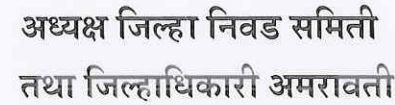 अध्यक्ष जिल्हा निवड समिती
तथा जिल्हाधिकारी अमरावती